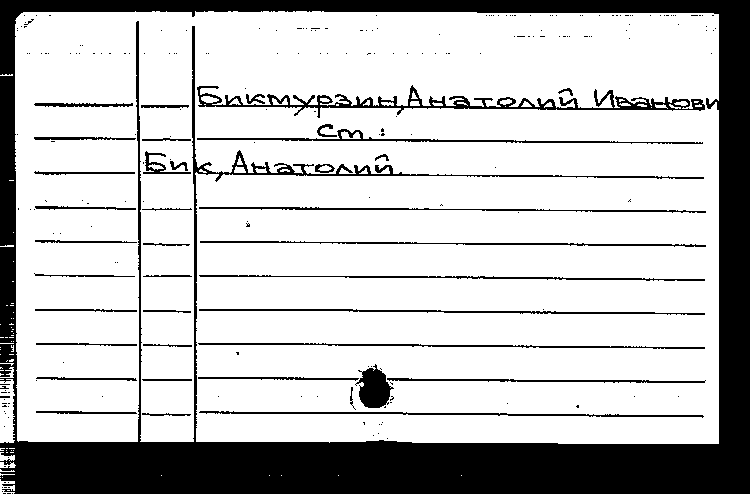 Биктурзин, Анатолий Иванови
см.:
Бик, Анатолий.